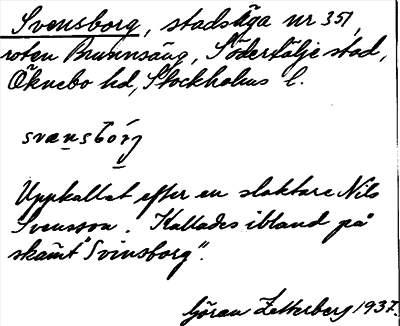 Svensborg, stadsäga nr 351,
roten Brunnsäng, Södertälje stad,
Öknebo hd, Stockholms l.
svænsbórj
Uppkallat efter en slaktare Nils
Svensson. Kallades ibland på
skämt "Svinsborg".
Göran Zetterberg 1937.